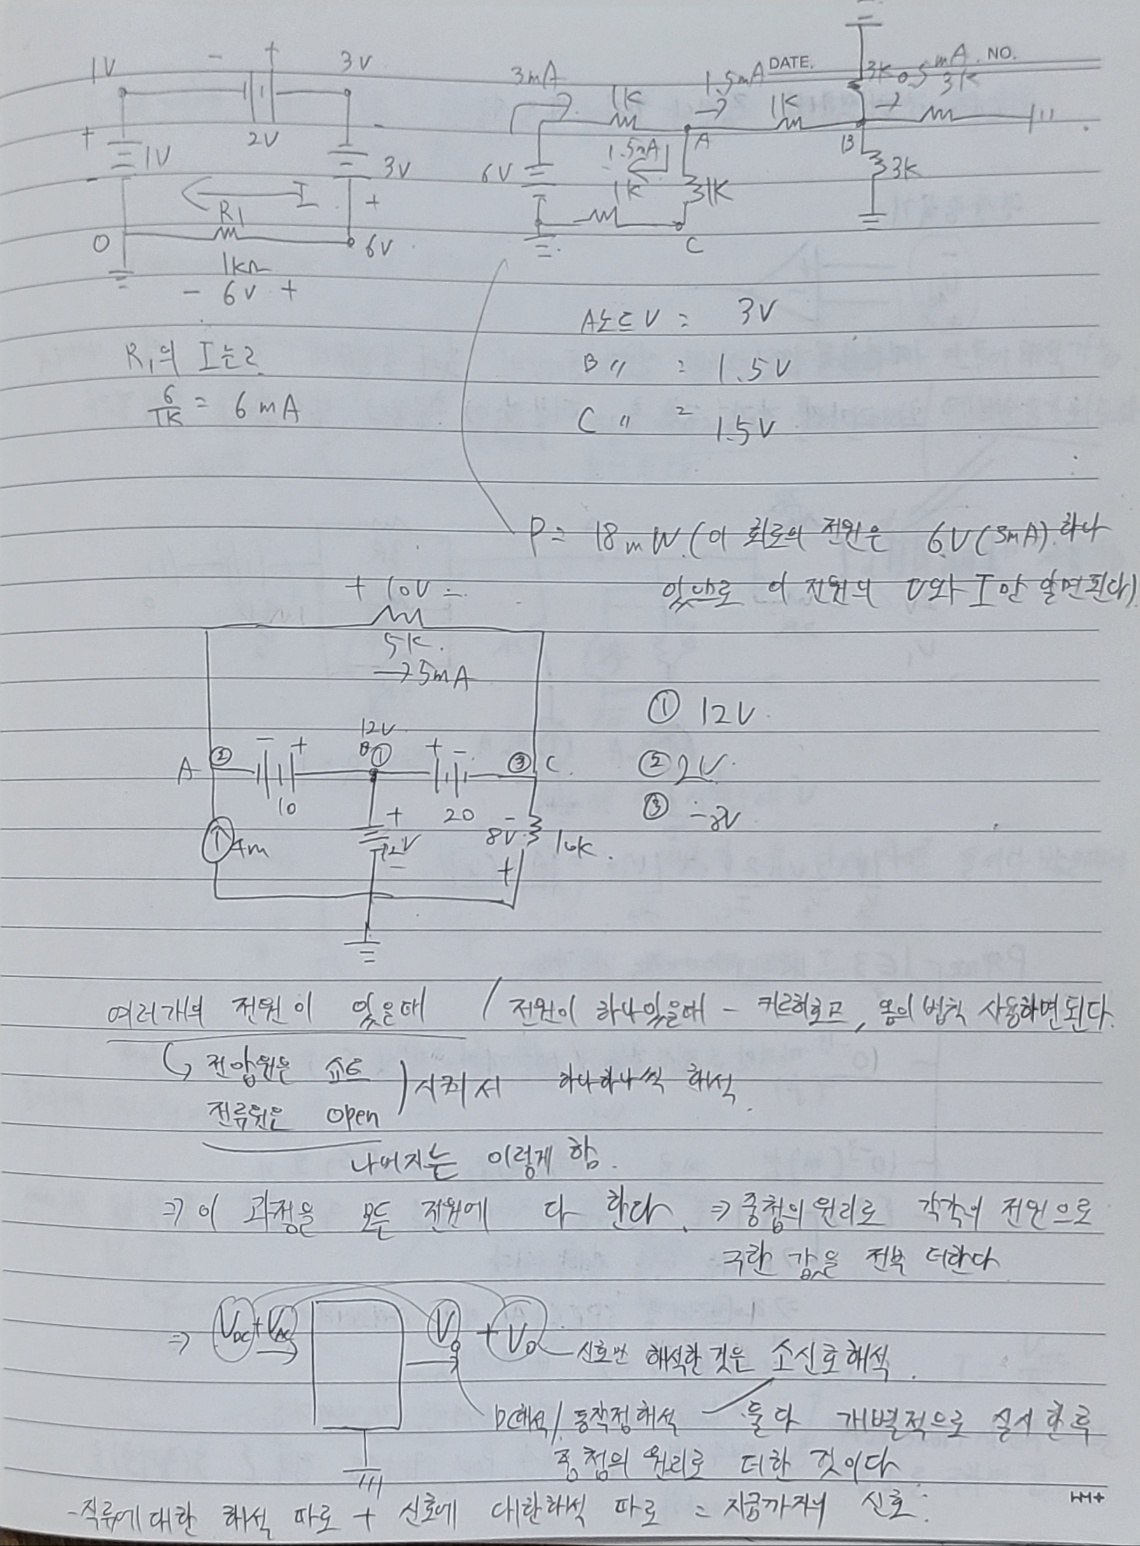 DATE. NO.
1V - + 3V
2V
+ 1V -
- 3V +
I
R1
0 6V
1kΩ
- 6V +
R1의 I는?
6/1K = 6mA
3mA 1.5mA 0.5mA
1K 1K 3K 3K
A B
6V 1.5mA
1K 1K 3K
C
A노드 V = 3V
B 〃 = 1.5V
C 〃 = 1.5V
P = 18mW. (이 회로의 전원은 6V(3mA) 하나
있으므로 이 전원의 V와 I만 알면된다)
+ 10V -
5K
→ 5mA
① 12V
② 2V
③ -8V
12V
A ② - + B ① + - ③ C
10 20
4m + 12V - 8V 10K
- +
여러개의 전원이 있을때 / 전원이 하나있을때 - 키르히호프, 옴의 법칙 사용하면된다.
↳ 전압원은 쇼트
전류원은 open ) 시켜서 하나하나씩 해석
나머지는 이렇게 함.
⇒ 이 과정을 모든 전원에 다 한다. ⇒ 중첩의 원리로 각각의 전원으로
구한 값을 전부 더한다
⇒ VDC + VAC
신호만 해석한 것은 소신호해석.
DC해석/동작점해석 둘다 개별적으로 실시한후
중첩의 원리로 더한 것이다
- 직류에 대한 해석 따로 + 신호에 대한해석 따로 = 지금까지의 신호.